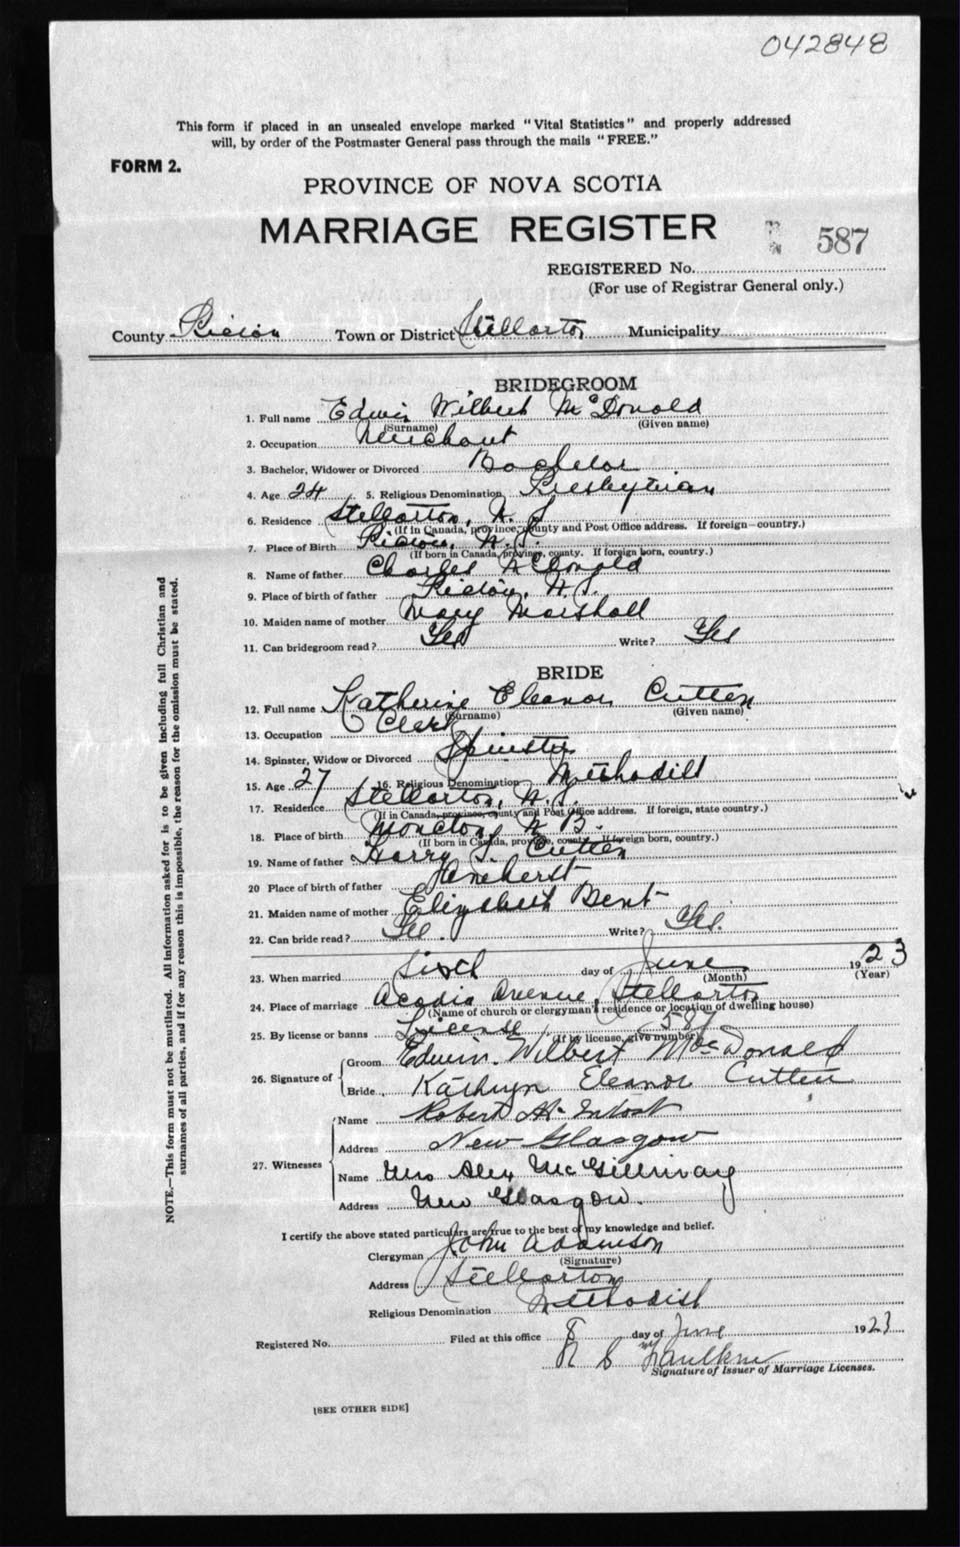 042848
This form if placed in an unsealed envelope marked "Vital Statistics" and properly addressed
will, by order of the Postmaster General pass through the mails "FREE."
FORM 2.
PROVINCE OF NOVA SCOTIA
MARRIAGE REGISTER
587
REGISTERED No.
(For use of Registrar General only.)
County Pictou Town or District Stellarton Municipality
BRIDEGROOM
1. Full name Edwin Wilbert McDonald
(Surname) (Given name)
2. Occupation Merchant
3. Bachelor, Widower or Divorced Bachelor
4. Age 24 5. Religious Denomination Presbyterian
6. Residence Stellarton, N.S.
(If in Canada, province, county and Post Office address. If foreign—country.)
7. Place of Birth Pictou, N.S.
(If born in Canada, province, county. If foreign born, country.)
8. Name of father Charles McDonald
9. Place of birth of father Pictou, N.S.
10. Maiden name of mother Mary Marshall
11. Can bridegroom read? Yes Write? Yes
BRIDE
12. Full name Katherine Eleanor Cutten
(Surname) (Given name)
13. Occupation Clerk
14. Spinster, Widow or Divorced Spinster
15. Age 27 16. Religious Denomination Methodist
17. Residence Stellarton, N.S.
(If in Canada, province, county and Post Office address. If foreign, state country.)
18. Place of birth Moncton, N.B.
(If born in Canada, province, county. If foreign born, country.)
19. Name of father Harry S. Cutten
20 Place of birth of father Amherst
21. Maiden name of mother Elizabeth Bent
22. Can bride read? Yes. Write? Yes.
23. When married Sixth day of June 1923
(Month) (Year)
24. Place of marriage Acadia Avenue, Stellarton
(Name of church or clergyman's residence or location of dwelling house)
25. By license or banns License
(If by license, give number)
26. Signature of
Groom Edwin Wilbert MacDonald
Bride Kathryn Eleanor Cutten
27. Witnesses
Name Robert
Address New Glasgow
Name Mrs Alex McGillivray
Address New Glasgow.
I certify the above stated particulars are true to the best of my knowledge and belief.
Clergyman John Adamson
(Signature)
Address Stellarton
Religious Denomination Methodist
Registered No. Filed at this office 8 day of June 1923
Faulkner
Signature of Issuer of Marriage Licenses.
[SEE OTHER SIDE]
NOTE.—This form must not be mutilated. All information asked for is to be given including full Christian and
surnames of all parties, and if for any reason this is impossible, the reason for the omission must be stated.